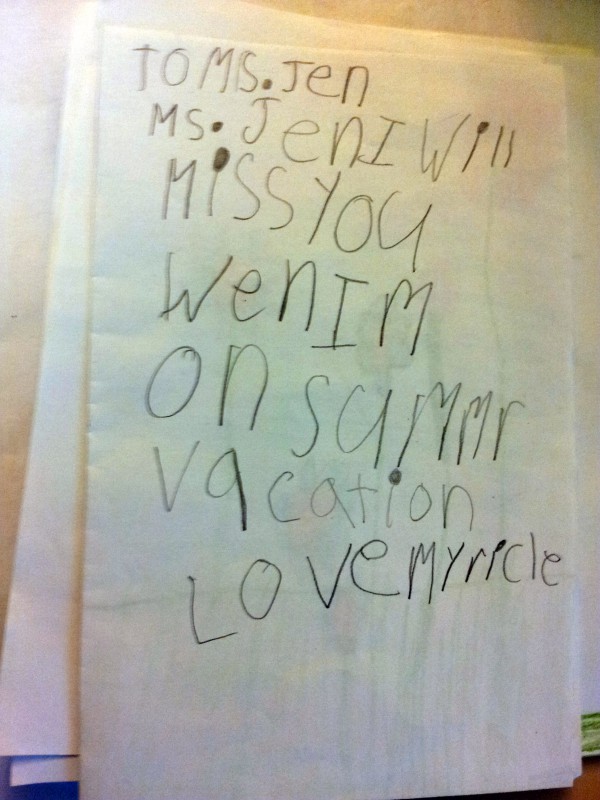 TO MS. Jen
Ms. Jen I Will
MiSS YOU
Wen IM
On SuMMr
Vacation
LOVe Myricle